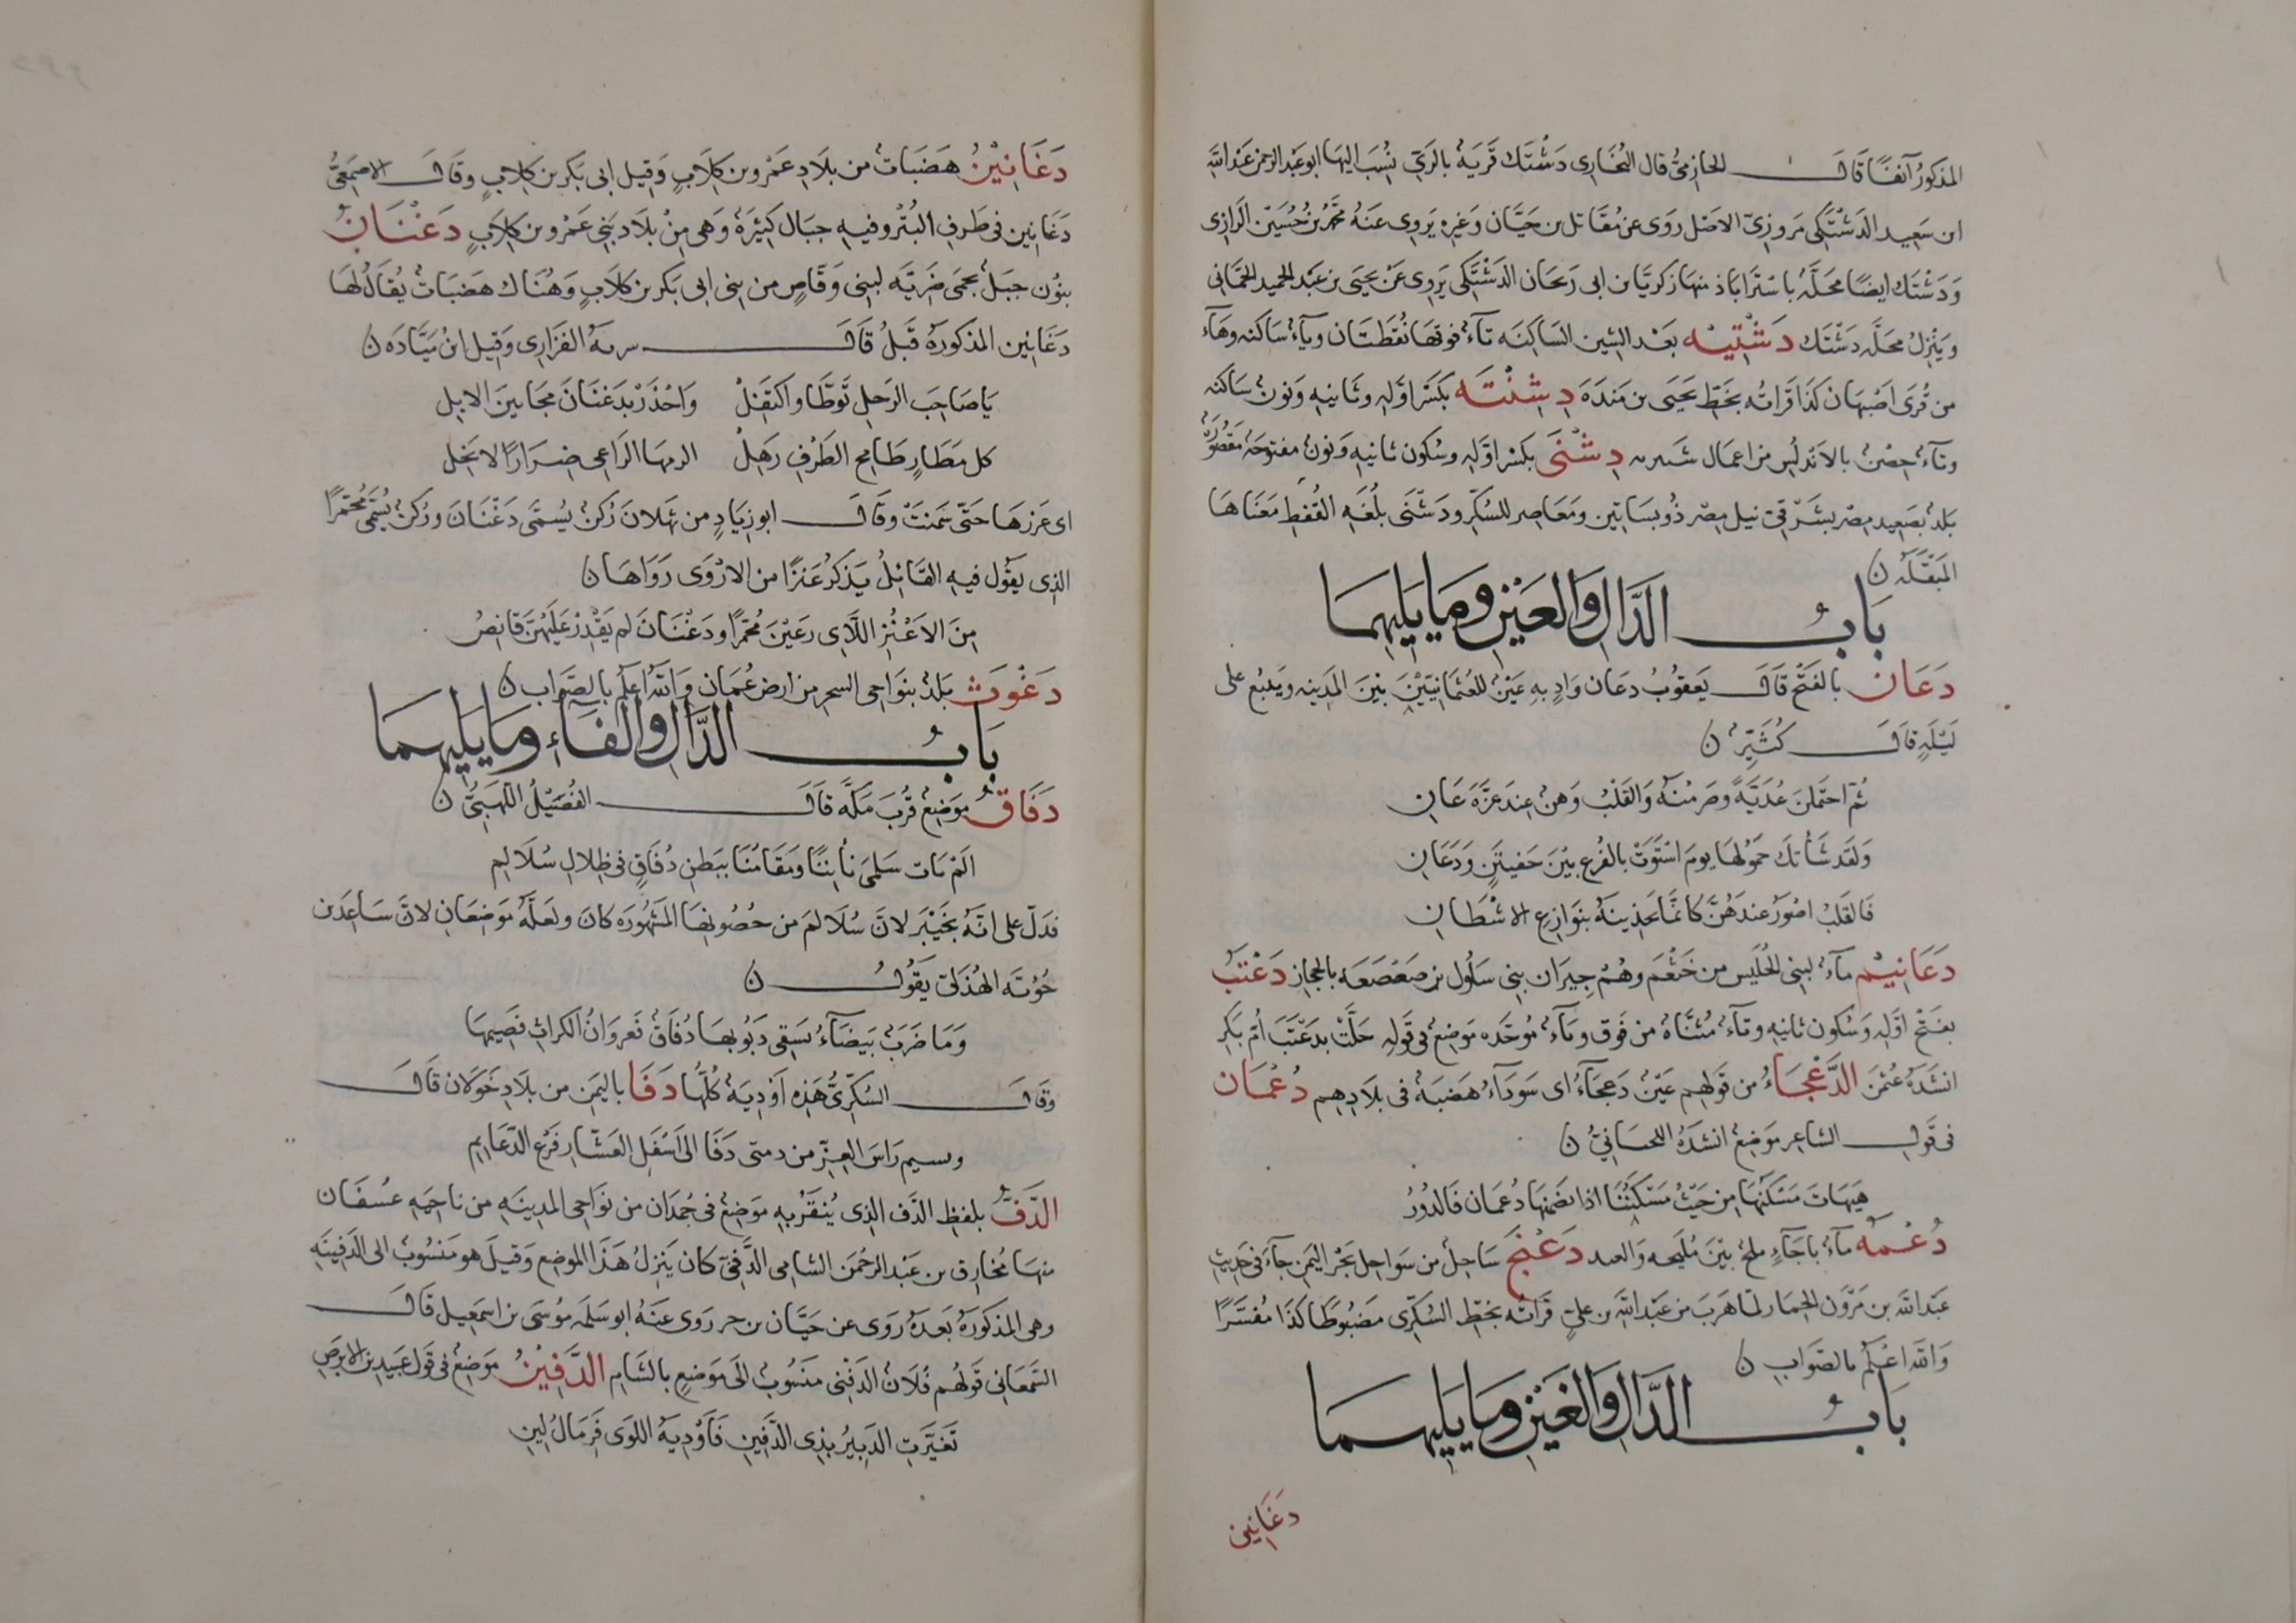 المذكورُ آنفًا قَالَ الحازميُّ قال البُخَارى دَشْتَك قَريَةٌ بالرَيّ نُسِبَ اليهَا ابو عَبْد الرحمن عَبْد اللَّه
ابن سَعِيد الدَشْتَكى مَروزىّ الاصْل رَوَى عن مُقَاتل بن حَيَّان وَغيرِه يَروِى عَنهُ محَّمدُ بنُ حُسَيْن الرَازِى
وَدَشْتَك ايضًا محَلَّةٌ باسْتَرابَاذ منهَا زكريَّا بن ابى رَيحَان الدَشْتَكى يَروِى عَنْ يحيَى بن عَبْد الحميد الحمَّانى
وَيَنْزِلُ محَلَّه دَشْتَك دَشْتِيْه بَعْد الشين السَاكِنَه تَآءٌ فوقهَا نُقطَتَان ويآءٌ سَاكنه وهَآء
من قُرَى اصْبهَان كذَا قَراتُه بخَطِّ يَحيَى بن مَندَه دِشِنْتَه بكَسْر اوَّلِهِ وثَانيهِ وَنونٌ سَاكنه
وتآءٌ حِصْنٌ بالاَندلُس من اعمَال شَنتريه دِشْنَى بكَسْر اوَّلِهِ وسُكون ثانيهِ وَنونٌ مفتوحَةٌ مَقصُورَةٌ
بَلدٌ بصَعِيد مِصْر بشَرْقىِّ نيل مِصْر ذُو بسَاتِين ومَعَاصِر للسُكّر ودَشْنَى بلُغَةِ القُفط مَعْنَاهَا
المَبْقَلَه ن
بَابُ الدَّالِ وَالعَيْنِ وَمَا يَلِيهِمَا
دَعَان بالفَتْح قَالَ يَعقوُبُ دعَان وَادٍ بهِ عَيْنٌ للعُثمَانِيِّيْنَ بَيْنَ المَدِينه وَيَنبُع على
لَيْلَهٍ قَالَ كُثَيِّرٌ ن
ثُمَّ احتَمَلنَ غُدَيَّةً وصَرَمْنَهُ وَالقَلبُ رَهنٌ عِندَ عَزَّةَ عَانِ
وَلقَد شَأَتكَ حُمُولهَا يومَ اسْتَوَتْ بالفُرع بيْنَ خَفَيْنَنٍ وَدَعَانِ
فَالقَلبُ اصْوَرُ عندَهُنَّ كانَّمَا يَجذِبنَهُ بنَوازِعِ الاشْطَانِ
دَعَانِيْم مَآءٌ لبَنى الحُلَيس من خَثعَم وهُمْ جِيرَان بنِى سَلُول بن صَعْصَعَه بالحجاز دَعْتَبُ
بفَتْح اوَّلِهِ وَسُكون ثانيهِ وتَآءٌ مُثنَّاةٌ من فَوق وبَآءٌ مُوحَّده مَوضِعٌ فى قَولِهِ حَلَّتْ بدَعْتَبَ اُمّ بَكرِ
انشَدَهُ عُثمن الدَّعْجَاءُ من قَولهِم عَيْنٌ دَعجَآءُ اى سَودَآءُ هَضبَةٌ فى بلاَدِهِم دُعْمَان
فى قَولِ الشاعِر مَوضِعٌ انشدَهُ اللحيَانيُّ ن
هَيهَاتَ مَسْكَنُهَا مِن حَيْثُ مَسْكَنُنَا اذا تضمنهَا دُعمَان فَالدُورُ
دُعْمَه مَآءٌ باَجَاءٍ ملحٌ بَيْنَ مُلَيحه وَالعبد دَعْنَج سَاحِلٌ من سَواحِل بَحْر اليمَن جَآءَ فى حَدِيثِ
عَبْد اللَّه بن مَرْوَن الحِمَار لمَا هَربَ من عَبْد اللَّه بن علىٍّ قَراتُه بخَطِّ السُكّرى مَضبُوطًا كَذَا مُفَسَّرًا
وَاللَّه اعْلَم بالصَوَاب ن
بَابُ الدَّالِ وَالغَيْنِ وَمَا يَلِيهِمَا
دغَانين
دَغَانِيْنُ هَضَبَاتٌ من بلاَدِ عَمْرو بن كِلاَبٍ وَقِيل ابى بَكر بن كِلابٍ وقَالَ الاصمَعِىُّ
دغَانِين فى طَرفِ البُتْر وفيهِ جبَال كثِيْرَةٌ وَهى مِنْ بلاَد بَنِى عَمْرو بن كِلاَبٍ دَغْنَانُ
بنُون جبَلٌ بحمَى ضَريَّه لبنِى وَقَّاصٍ من بنى ابى بَكر بن كلاَبٍ وَهُنَاك هَضبَاتٌ يُقَالُ لهَا
دَغَانِين المذكورَةُ قَبلُ قَالَ سريه الفَزَارِى وَقِيل ابنُ ميَّادَه ن
يَا صَاحِبَ الرَحلِ تَوطَّا وَاكتَفِلْ وَاحْذَرْ بدَغنَانَ مَجَانينَ الابِل
كل مَطَارٍ طَامح الطَرْفِ رَهِلْ الزمهَا الرَاعِى ضِرَارًا لا نَخِل
اى غرزهَا حَتّى سَمنَتْ وقَالَ ابو زيَادٍ من ثَهلانَ ركنٌ يُسمَّى دَغْنَانَ وركنٌ يُسَمَّى مُخمّرًا
الذِى يقوُل فيهِ القَائلُ يَذكرُ عَنزًا من الارْوَى رَوَاهَا ن
مِنَ الاَعْنُزِ اللَّاى رعَيْنَ مُخمّرًا ودَغْنَانَ لم يَقْدِرْ عَلَيْهنّ قَانِصُ
دَغُوث بَلدٌ بنَواحِى السحر من ارض عُمَان وَاللَّه اعلَم بالصَوَاب ن
بَابُ الدَّالِ وَالفَاءِ وَمَا يَلِيهِمَا
دَفَاقُ مَوضِعٌ قُربَ مَكَّه قَالَ الفُضَيْلُ اللَّهَبِىُّ ن
الَمْ يَات سَلمىَ نَاْيُنَا ومَقَامُنَا ببَطنِ دُفَاقٍ فى ظِلالِ سُلاَلِم
فدَلّ على انَّه بخَيْبَر لانَّ سُلَالمَ من حُصُونِهَا المَشهُورَه كانَ ولعَلَّهُ مَوضِعَانِ لانَّ سَاعِدَ بن
جُؤيَّه الهُذَلىّ يقَوُلُ ن
وَمَا ضَرَبٌ بَيضَآءُ يَسقِى دَبُوبهَا دُفَاقٌ فَعروَانُ الكَراثِ فضِيمهَا
وَقَالَ السُكّرىُّ هَذِهِ اَوْدِيَةٌ كُلُّهَا دَفَا باليَمَن من بلاَدِ خَولاَن قَالَ
وسيم رَاسَ العِزِّ من دمتى دَفَا الى اَسْفَلِ العَشّارِ فَرعِ الدّعَايم
الدَّفُّ بلفظِ الدَف الذِى يُنقَرُ بهِ مَوضِعٌ فى جُمدَان من نَوَاحِى المدِينَهِ من نَاحِيَهِ عسُفَان
منهَا مُخَارِق بن عَبْد الرحْمَن الشامِى الدَّفّىّ كان يَنزِلُ هَذَا الموضِع وَقِيلَ هو مَنسُوبٌ الى الدَفِينَهِ
وهى المذكورَةُ بَعدَهُ رَوَى عن حَيَّان بن جر رَوى عَنهُ ابو سَلَمَه مُوسَى بن اسمَعِيل قَالَ
السَّمعَانِى قَولهُم فُلَانٌ الدَفْنِى مَنسُوبٌ الىَ مَوضِعٍ بالشَامِ الدَّفِيْنُ مَوَضِعٌ فى قَول عَبِيد بن الابرَصِ
تَغيَّرتِ الدِيَارُ بذِى الدَّفِين فَاَوْدِيَةُ اللوَى فَرِمَالُ لِينِ